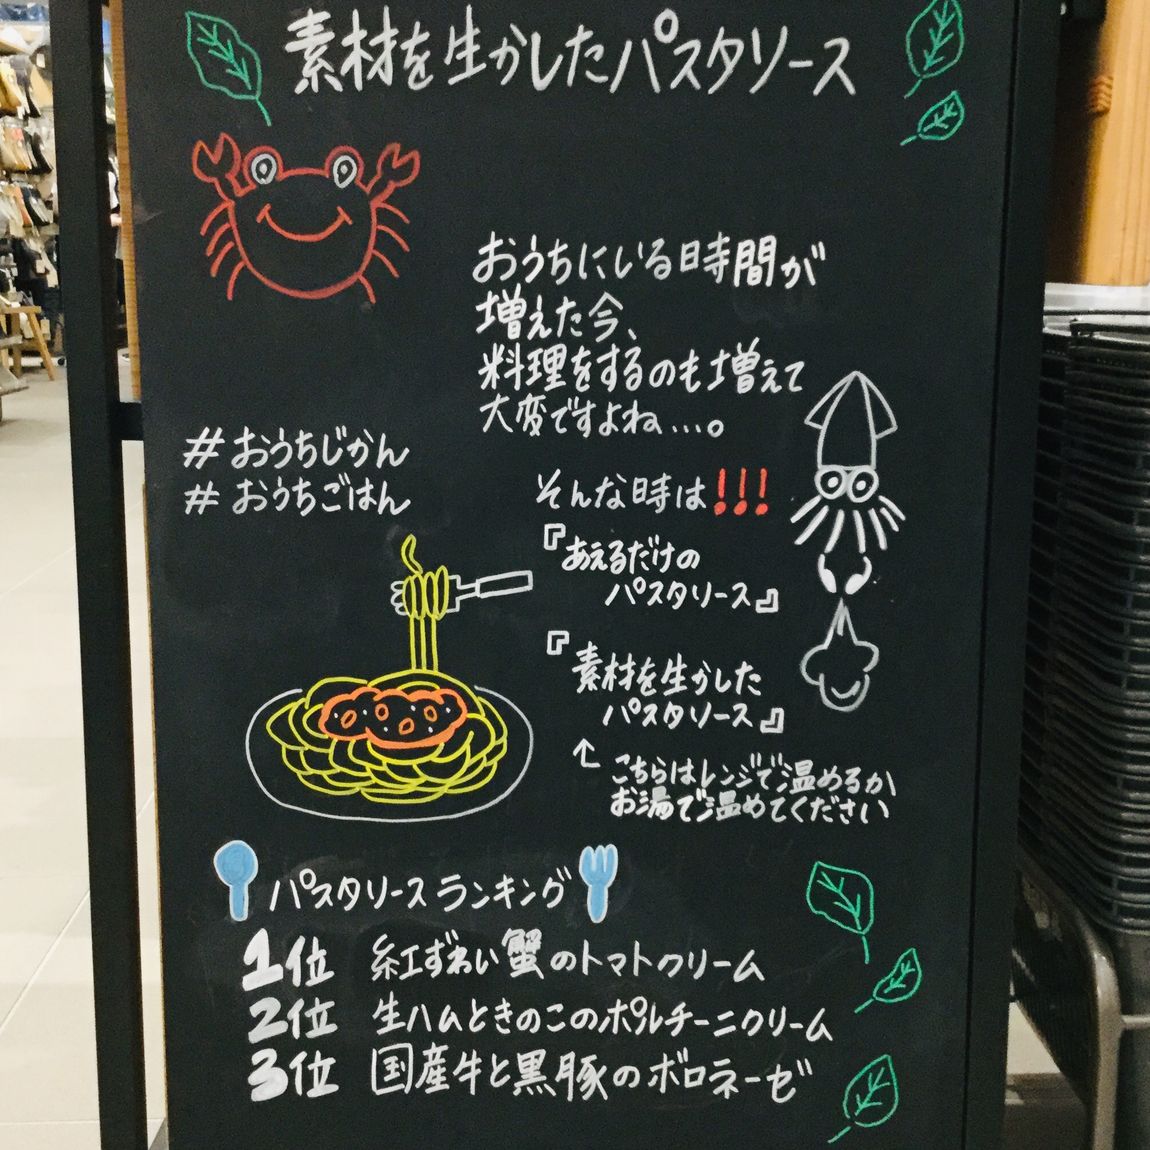 素材を生かしたパスタソース
おうちにいる時間が
増えた今、
料理をするのも増えて
大変ですよね…。
#おうちじかん
#おうちごはん
そんな時は!!!
『あえるだけの
パスタソース』
『素材を生かした
パスタソース』
↑こちらはレンジで温めるか
お湯で温めてください
パスタソースランキング
1位 紅ずわい蟹のトマトクリーム
2位 生ハムときのこのポルチーニクリーム
3位 国産牛と黒豚のボロネーゼ